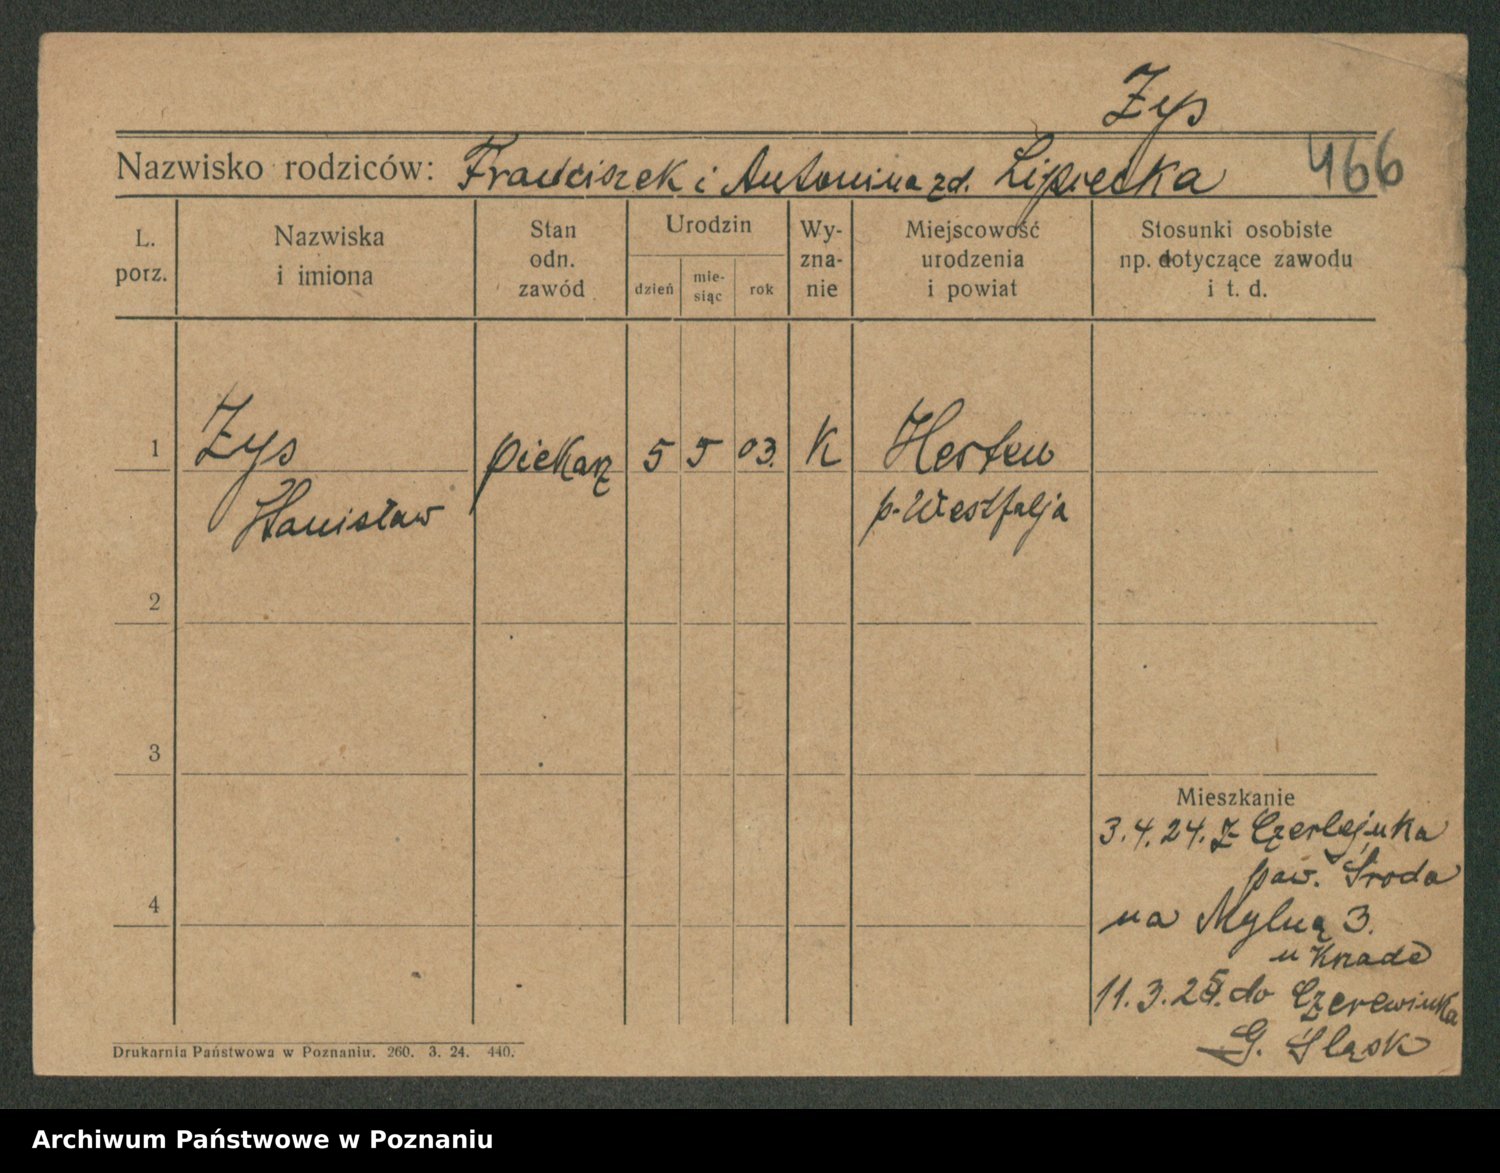 Zys
Nazwisko rodziców: Franciszek i Antonina zd. Lipiecka 466
L. porz.
Nazwiska i imiona
Stan odn. zawód
Urodzin
dzień
mie-siąc
rok
Wy-zna-nie
Miejscowość urodzenia i powiat
Stosunki osobiste np. dotyczące zawodu i t. d.
1 Zys piekarz 5 5 03. K Herten
Stanisław p. Westfalja
2
3
Mieszkanie
3.4.24. z Czerlejnka
pow. Środa
4
na Mylną 3.
u Knade
11.3.25. do Czerewinka
G. Śląsk
Drukarnia Państwowa w Poznaniu. 260. 3. 24. 440.
Archiwum Państwowe w Poznaniu